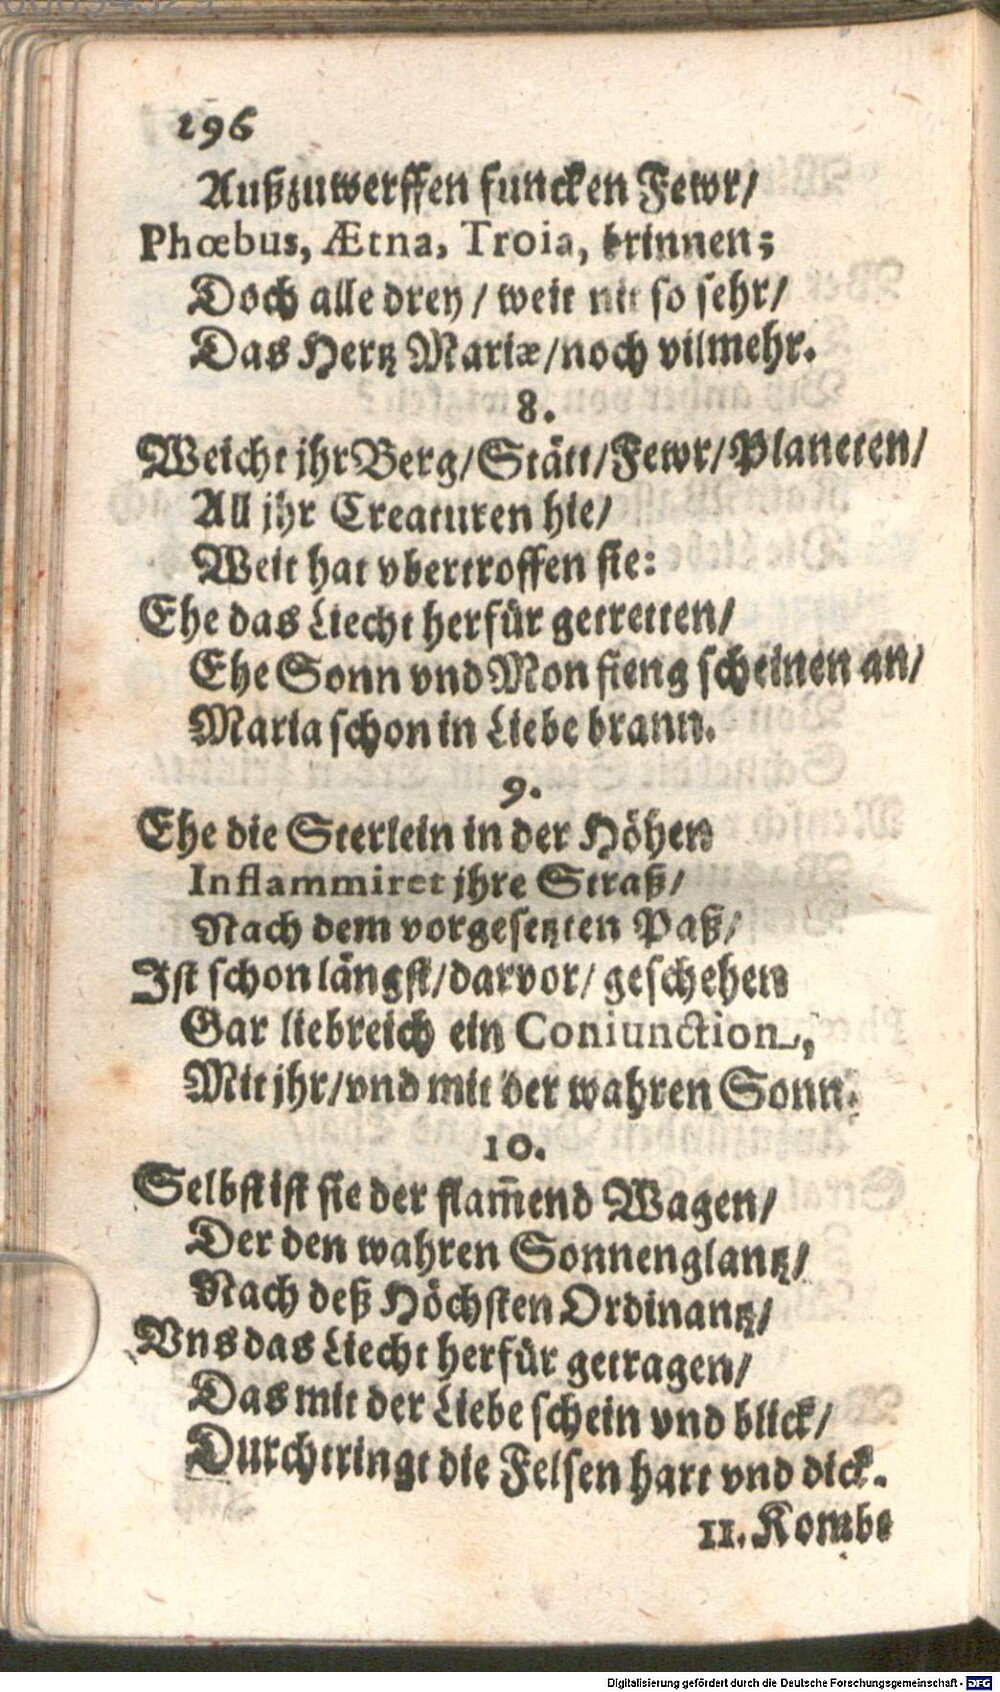 196
Außzuwerffen funcken Fewr/
Phœbus, Ætna, Troia, brinnen;
Doch alle drey / weit nit so sehr/
Das Hertz Mariæ/noch vilmehr.
8.
Weicht jhr Berg/Stätt/Fewr/Planeten/
All jhr Creaturen hie/
Weit hat vbertroffen sie:
Ehe das Liecht herfür getretten/
Ehe Sonn vnd Mon fieng scheinen an/
Maria schon in Liebe brann.
9.
Ehe die Sterlein in der Höhen
Inflammiret jhre Straß/
Nach dem vorgesetzten Paß/
Ist schon längst/darvor/ geschehen
Gar liebreich ein Coniunction,
Mit jhr/vnd mit der wahren Sonn.
10.
Selbst ist sie der flam̄end Wagen/
Der den wahren Sonnenglantz/
Nach deß Höchsten Ordinantz/
Vns das Liecht herfür getragen/
Das mit der Liebe schein vnd blick/
Durchtringt die Felsen hart vnd dick.
11. Kombe
Digitalisierung gefördert durch die Deutsche Forschungsgemeinschaft - DFG